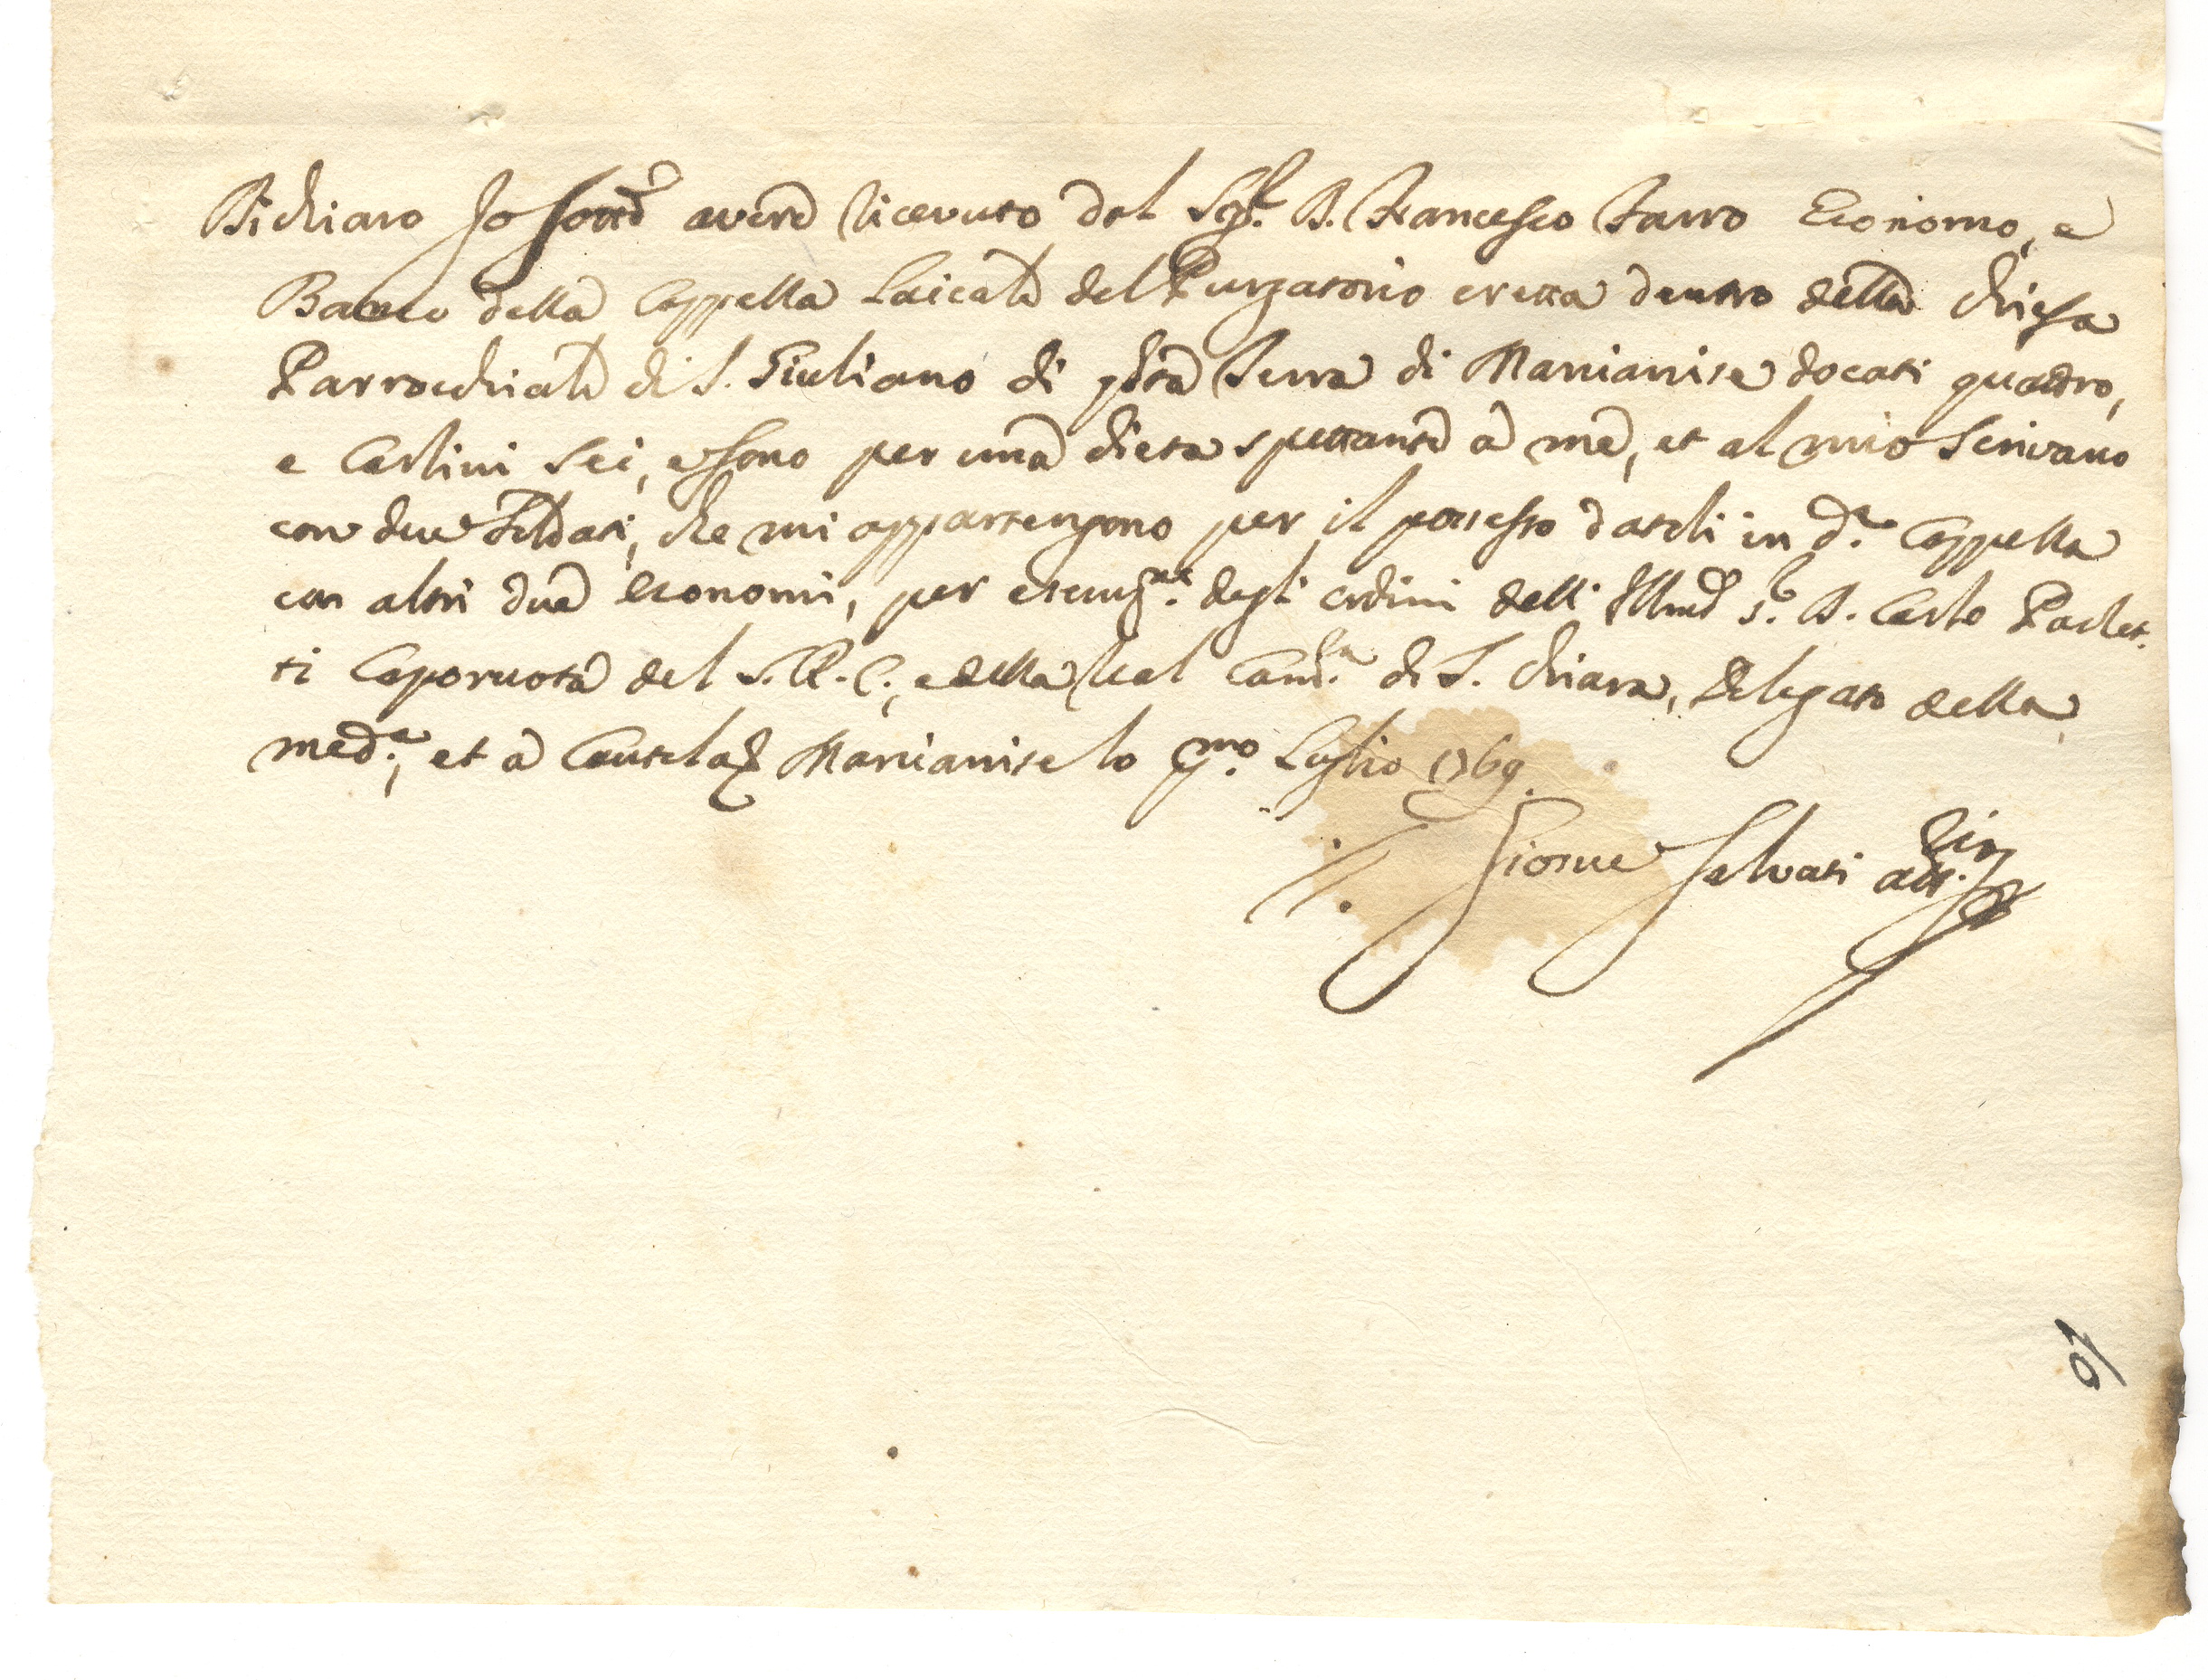 Dichiaro Io sottō avere ricevuto dal Sigr. D. Francesco Farro Economo, e
Banco della Cappella Laicale del Purgatorio eretta dentro della Chiesa
Parrocchiale di S. Giuliano di q̄sta Terra di Marcianise docati quattro,
e Carlini Sei, e sono per una dieta spettante à me, et al mio Scrivano
con due Soldati, che mi appartengono per il possesso datoli in d.a Cappella
con altri due economi, per esecuz.ne degli ordini dell' Illmō S.r D. Carlo Paolet-
ti Caporuota del S. R. C., e della Real Cam.a di S. Chiara, Delegato della
med.a, et à Cautela Marcianise lo p.mo Luglio 1769
Giosue Salvati